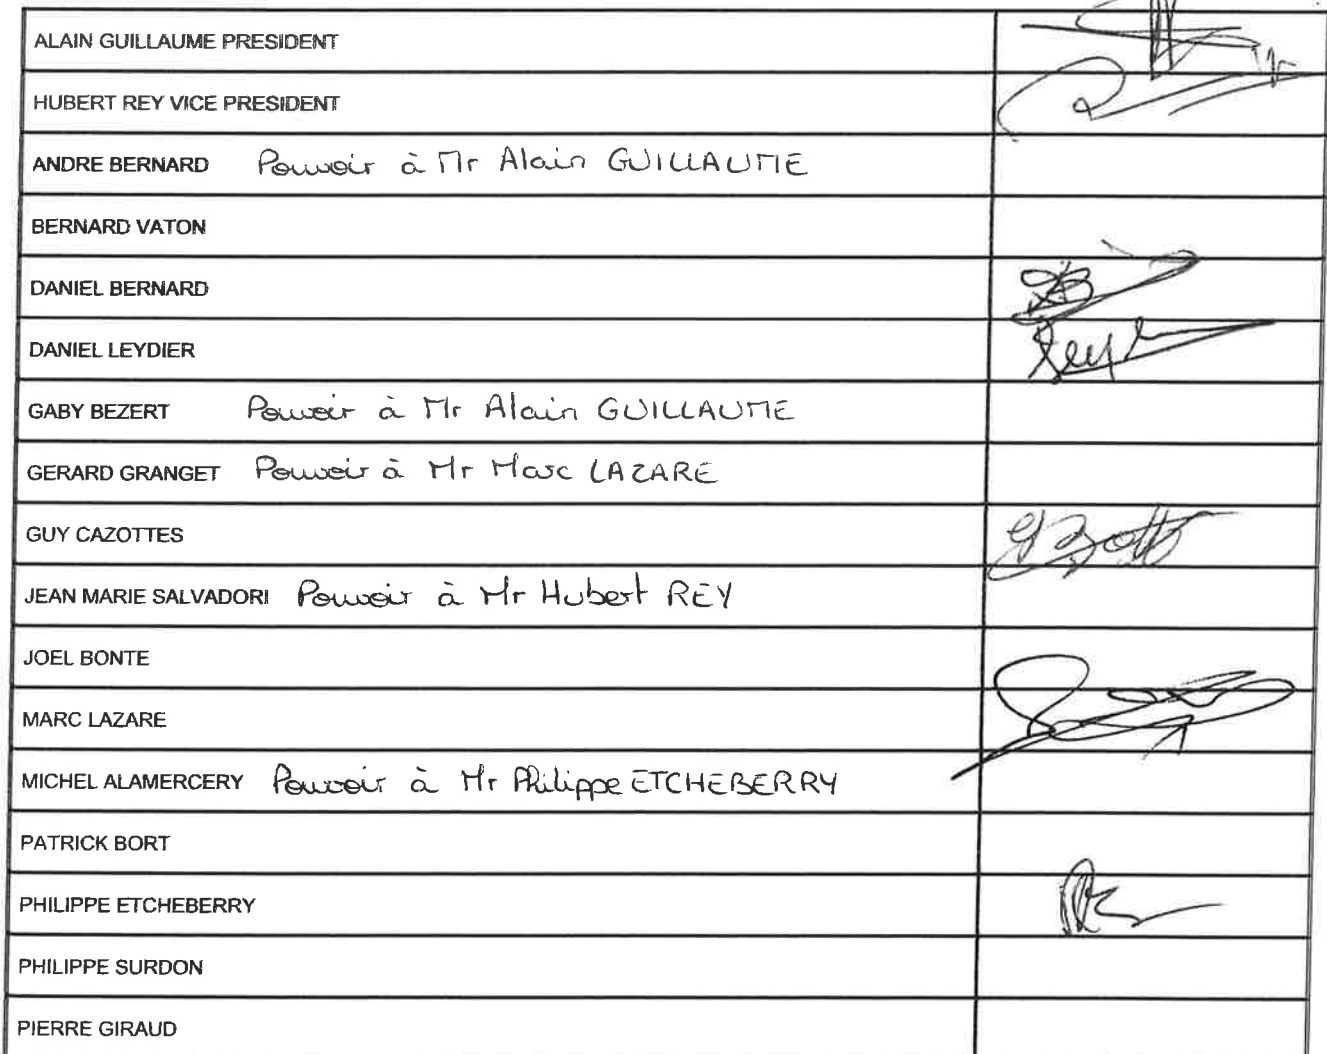 ALAIN GUILLAUME PRESIDENT
HUBERT REY VICE PRESIDENT
ANDRE BERNARD Pouvoir à Mr Alain GUILLAUME
BERNARD VATON
DANIEL BERNARD
DANIEL LEYDIER
GABY BEZERT Pouvoir à Mr Alain GUILLAUME
GERARD GRANGET Pouvoir à Mr Marc LAZARE
GUY CAZOTTES
JEAN MARIE SALVADORI Pouvoir à Mr Hubert REY
JOEL BONTE
MARC LAZARE
MICHEL ALAMERCERY Pouvoir à Mr Philippe ETCHEBERRY
PATRICK BORT
PHILIPPE ETCHEBERRY
PHILIPPE SURDON
PIERRE GIRAUD